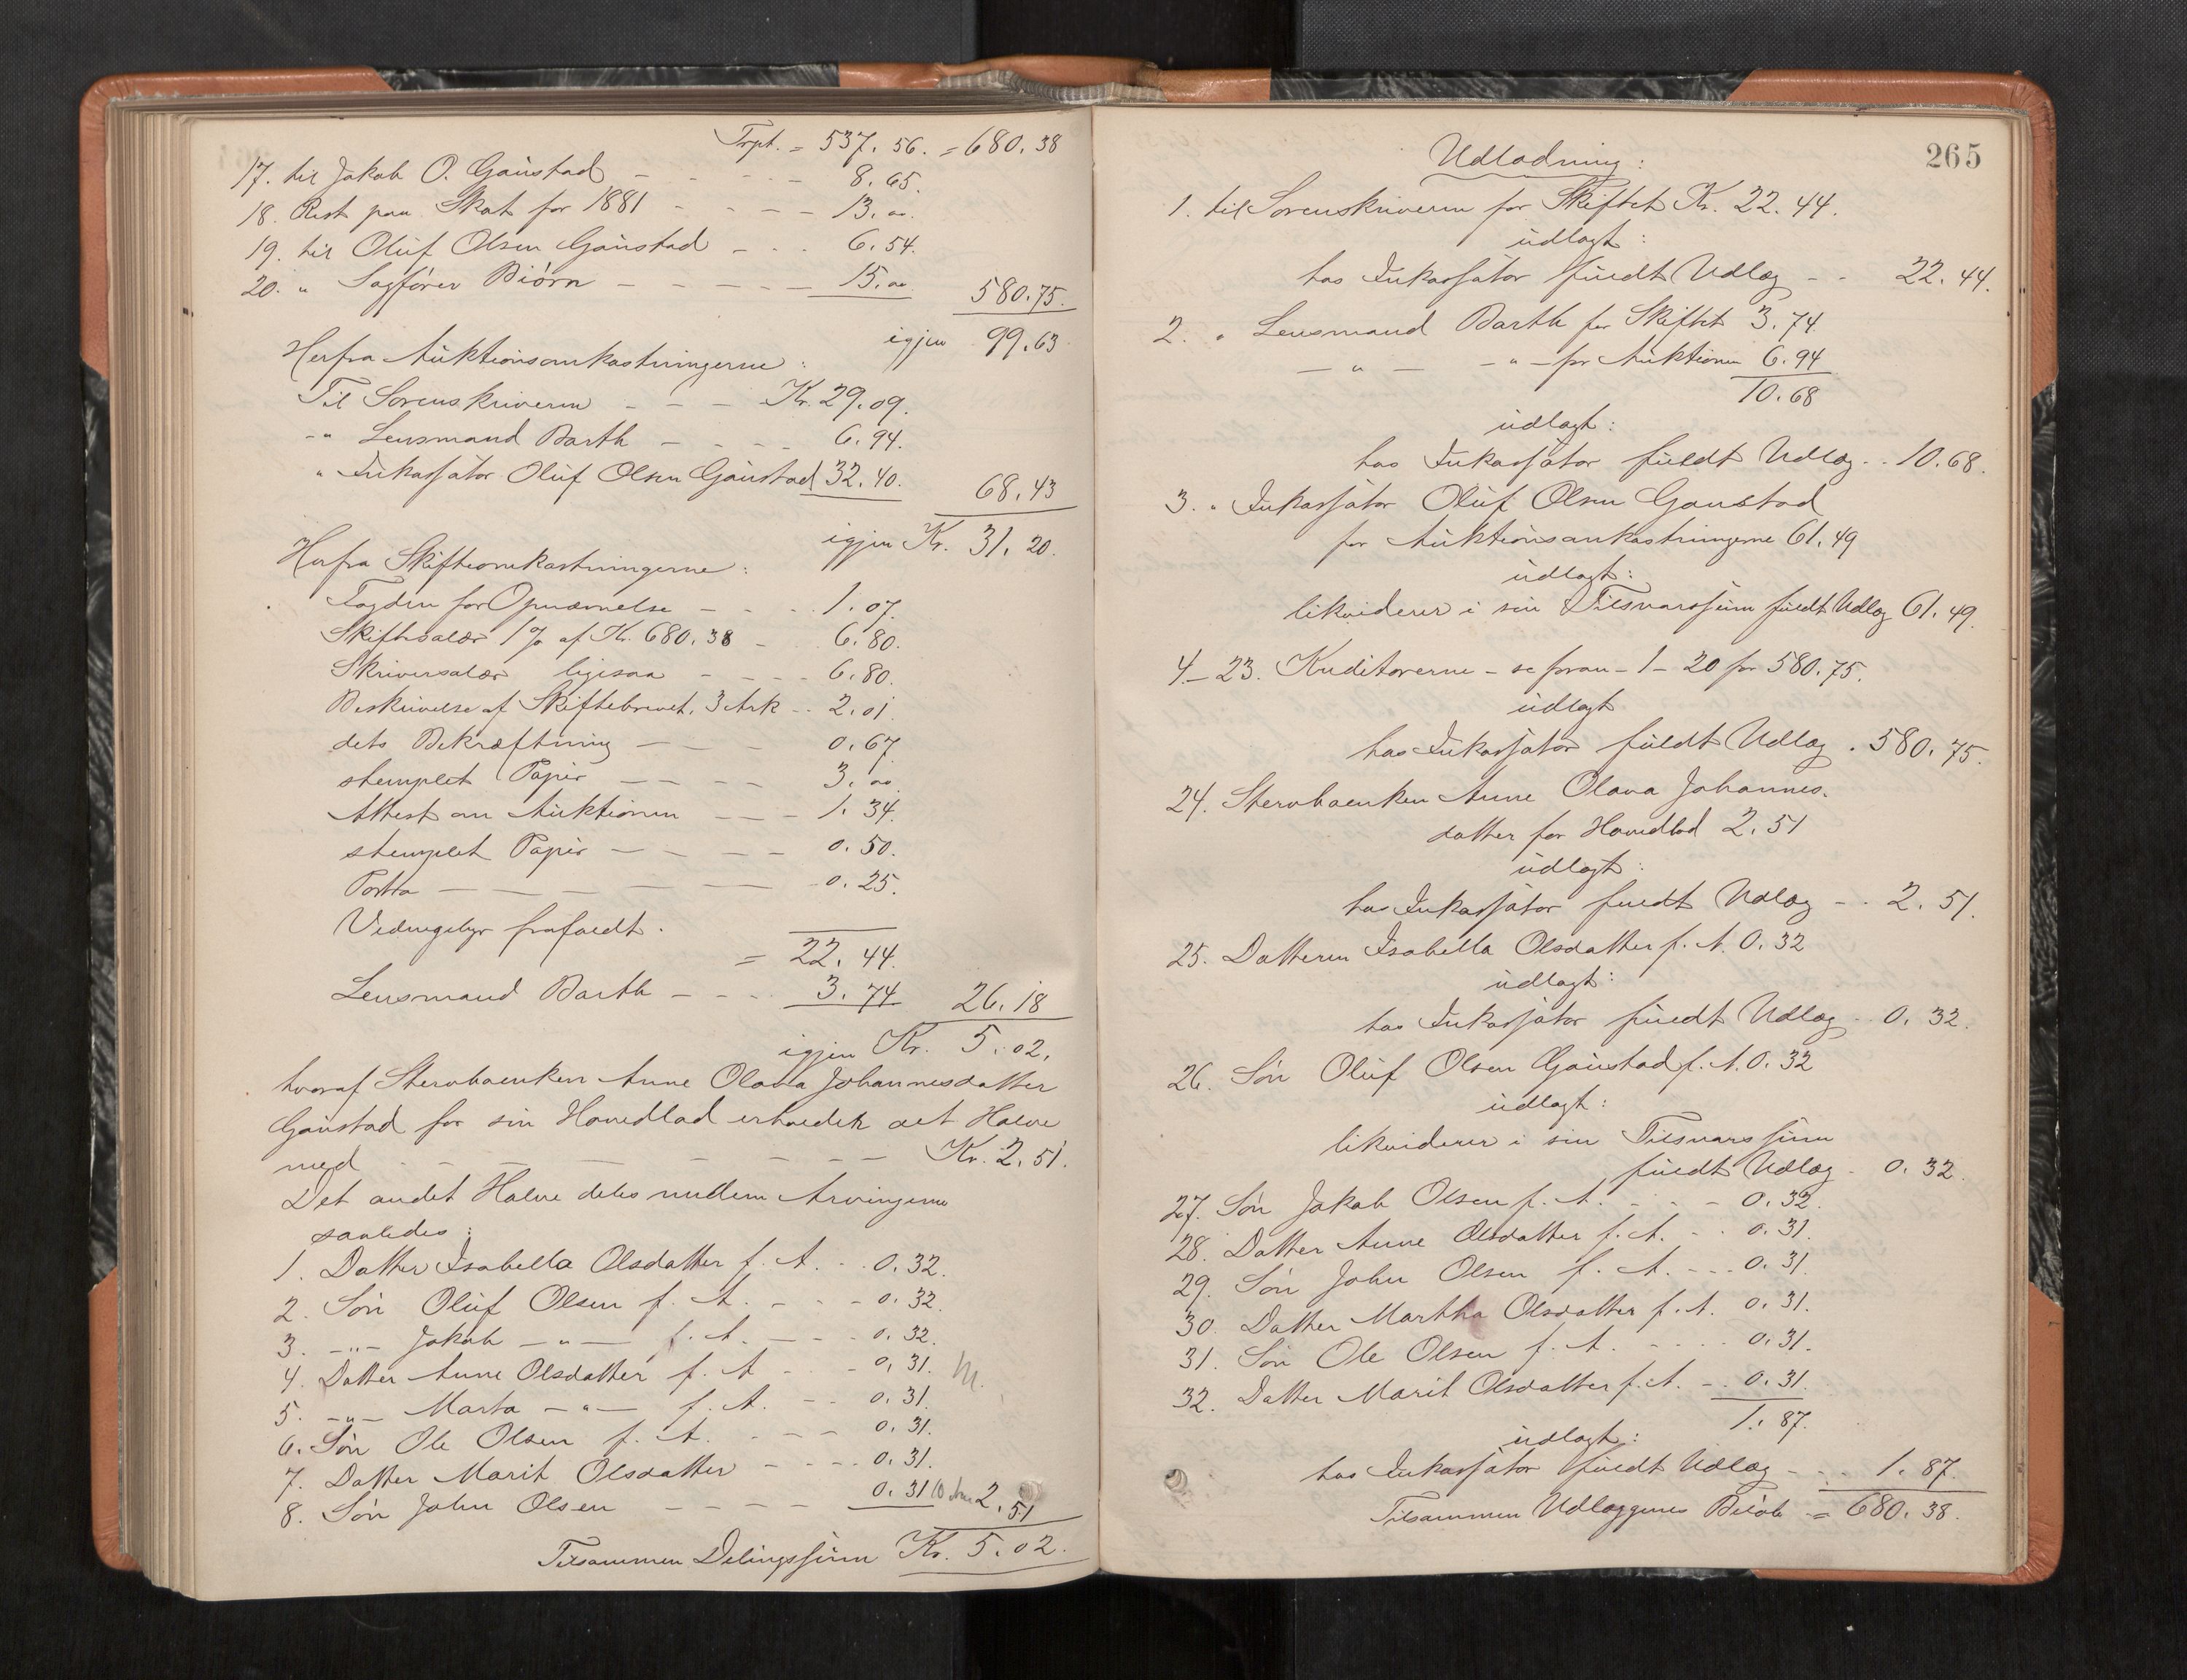 Trpt. = 537. 56. = 680. 38
17. til Jakob O. Gaustad - - - - - 8. 65.
18. Rest paa Skat for 1881 - - - - 13. oo.
19. til Oluf Olsen Gaustad - - - 6. 54.
20. " Sagfører Biørn - - - - - 15. oo. 580. 75.
igjen 99. 63
Herfra Auktionsomkostningerne:
Til Sorenskriveren - - - Kr. 29. 09.
-" Lensmand Barth - - - - 6. 94.
" Inkassator Oluf Olsen Gaustad 32. 40. 68. 43
igjen Kr. 31. 20.
Herfra Skifteomkostningerne:
Fogden for Opnævnelse - - - 1. 07.
Skiftesalær 1 % af Kr. 680. 38 - 6. 80.
Skriversalær ligesaa - - - - 6. 80.
Beskrivelse af Skiftebrevet, 3 Ark - - 2. 01.
dets Bekræftning - - - 0. 67
stemplet Papir - - - - 3. oo.
Attest om Auktionen - - - 1. 34.
stemplet Papir - - - - 0. 50.
Porto - - - - - - 0. 25.
frafaldt.
= 22. 44.
Lensmand Barth - - - 3. 74 26. 18
igjen Kr. 5. 02.
hvoraf Stervboenken Anne Olava Johannesdatter
Gaustad for sin Hovedlod erholder det Halve
med - - - - - - Kr. 2. 51.
Det andet Halve deles mellem Arvingerne
saaledes:
1. Datter Isabella Olsdatter f. A. - - 0. 32.
2. Søn Oluf Olsen f. A. - - - 0. 32.
3. -"- Jakob -"- f. A. - - - 0. 32.
4. Datter Anne Olsdatter f. A - - 0. 31.
5. -"- Marta -"- f. A. - - 0. 31.
6. Søn Ole Olsen f. A. - - - 0. 31.
7. Datter Marit Olsdatter - - - - 0. 31.
8. Søn John Olsen - - - - 0. 31 2. 51
Tilsammen Delingssum Kr. 5. 02.
265
Udlodning:
1. til Sorenskriveren for Skiftet Kr. 22. 44.
udlagt:
hos Inkassator fuldt Udlæg - - 22. 44.
2. " Lensmand Barth for Skiftet 3. 74
- " - - " - for Auktionen 6. 94
10. 68
udlagt:
hos Inkassator fuldt Udlæg - - 10. 68.
3. " Inkassator Oluf Olsen Gaustad
for Auktionsomkostningerne 61. 49
udlagt:
likviderer i sin Tilsvarssum fuldt Udlæg 61. 49.
4 - 23. Kreditorerne - se foran - 1 - 20 for 580. 75.
udlagt
hos Inkassator fuldt Udlæg . 580. 75.
24. Stervboenken Anne Olava Johannes-
datter for Hovedlod 2. 51
udlagt:
hos Inkassator fuldt Udlæg - - 2. 51.
25. Datteren Isabella Olsdatter f. A. 0. 32
udlagt:
hos Inkassator fuldt Udlæg - - 0. 32.
26. Søn Oluf Olsen Gaustad f. A. 0. 32
udlagt:
likviderer i sin Tilsvarssum
fuldt Udlæg - 0. 32.
27. Søn Jakob Olsen f. A. - - - 0. 32.
28. Datter Anne Olsdatter f. A. - - 0. 31.
29. Søn John Olsen f. A. - - - 0. 31.
30. Datter Martha Olsdatter f. A. 0. 31.
31. Søn Ole Olsen f. A. - - - - 0. 31.
32. Datter Marit Olsdatter f. A. - 0. 31.
1. 87.
udlagt:
hos Inkassator fuldt Udlæg - - - 1. 87.
Tilsammen Udlæggenes Beløb - = 680. 38.